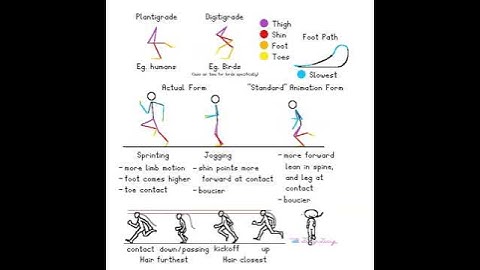 Plantigrade
Digitigrade
Thigh
Shin
Foot
Toes
Foot Path
Slowest
Eg. humans
Eg. Birds
Actual Form
"Standard" Animation Form
Sprinting
- more limb motion
- foot comes higher
- toe contact
Jogging
- shin points more
forward at contact
- boucier
- more forward
lean in spine,
and leg at
contact
- boucier
contact
down/passing
kickoff
up
Hair furthest
Hair closest